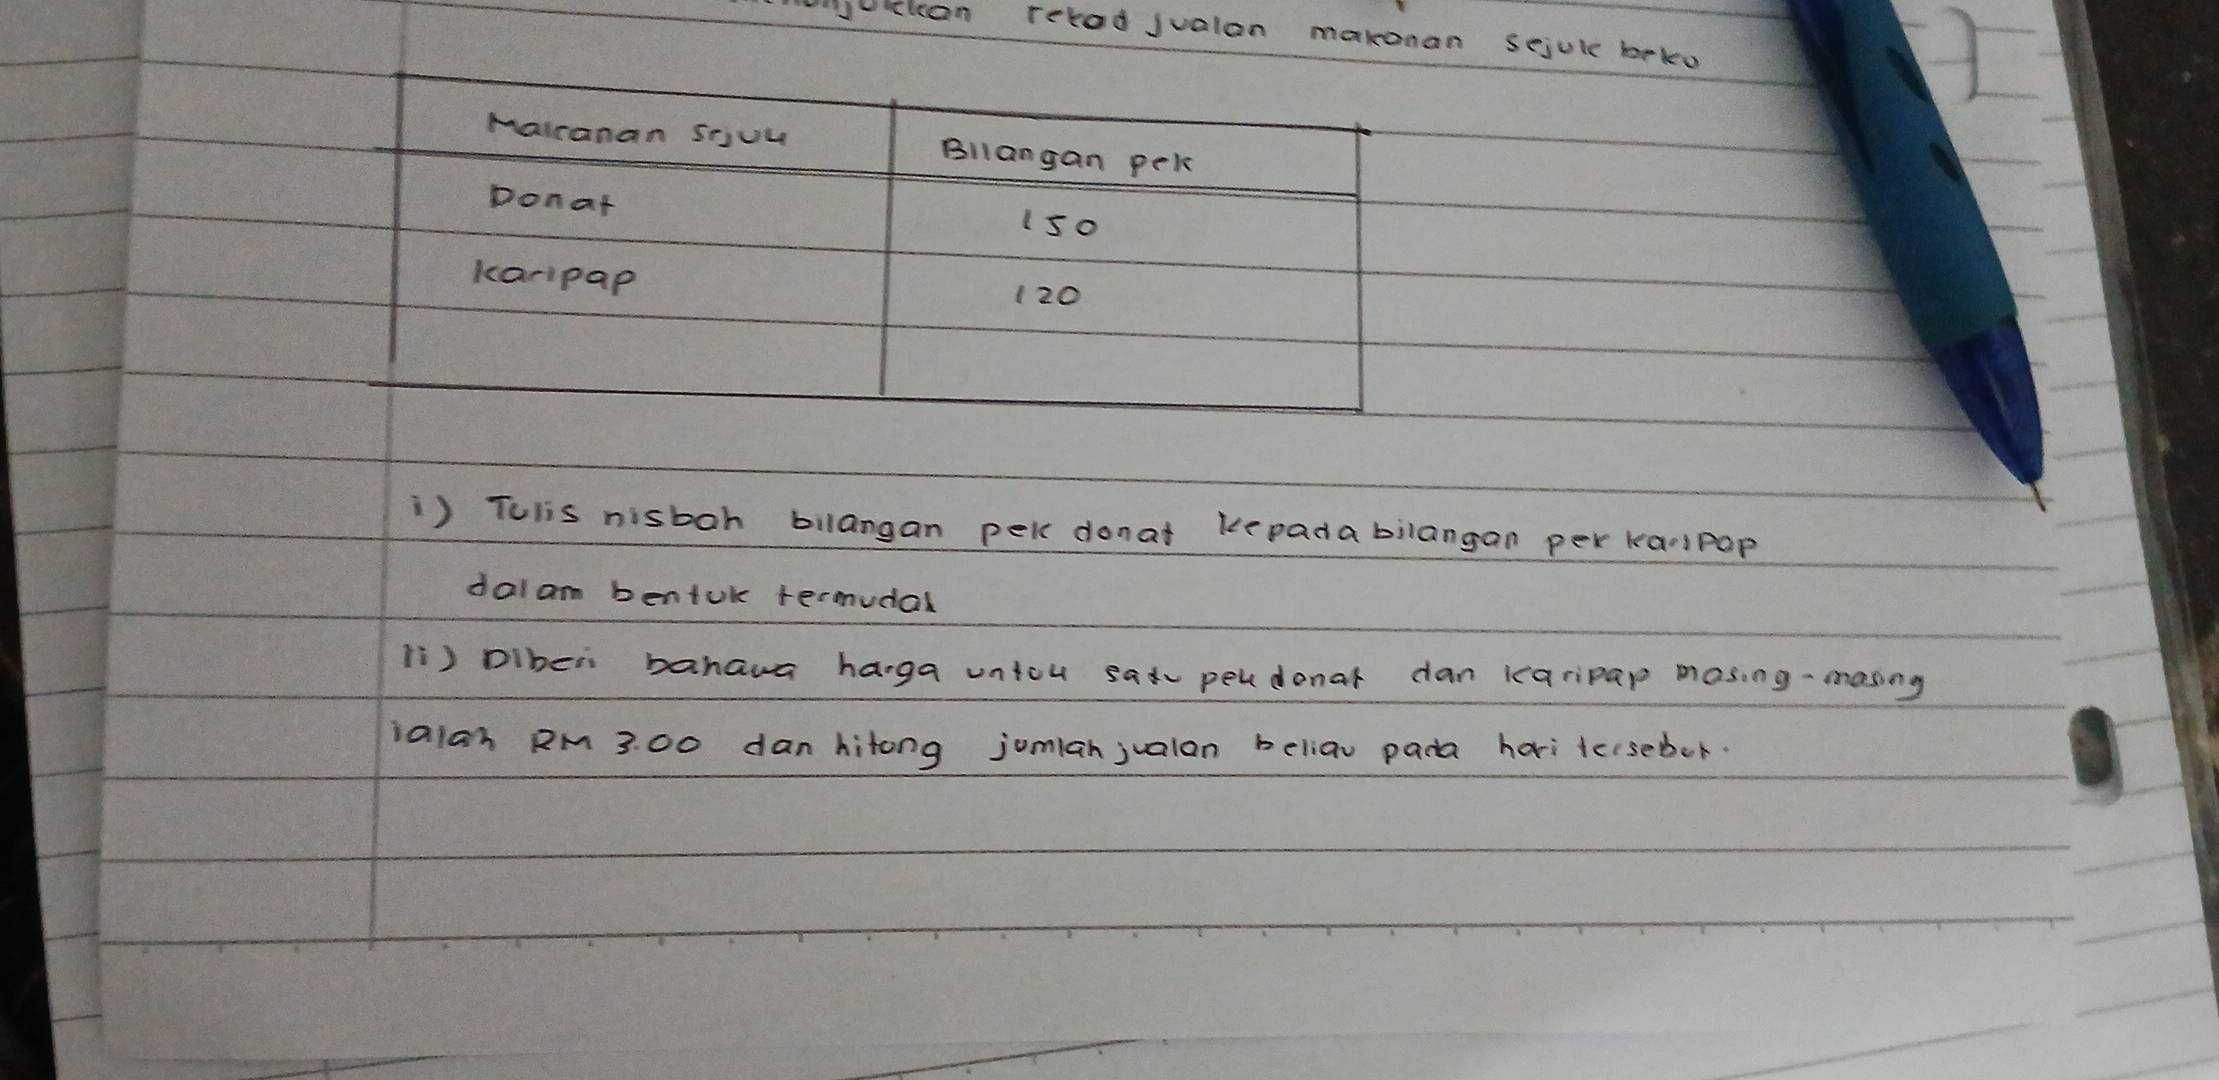 rekod jualan makanan sejuk beku
Makanan sejuk Bilangan pek
Donat 150
Karipap 120
i) Tulis nisbah bilangan pek donat kepada bilangan pek karipap
dalam bentuk termudah
ii) Diberi bahawa harga untuk satu pek donat dan karipap masing-masing
ialah RM 3.00 dan hitung jumlah jualan beliau pada hari tersebut.